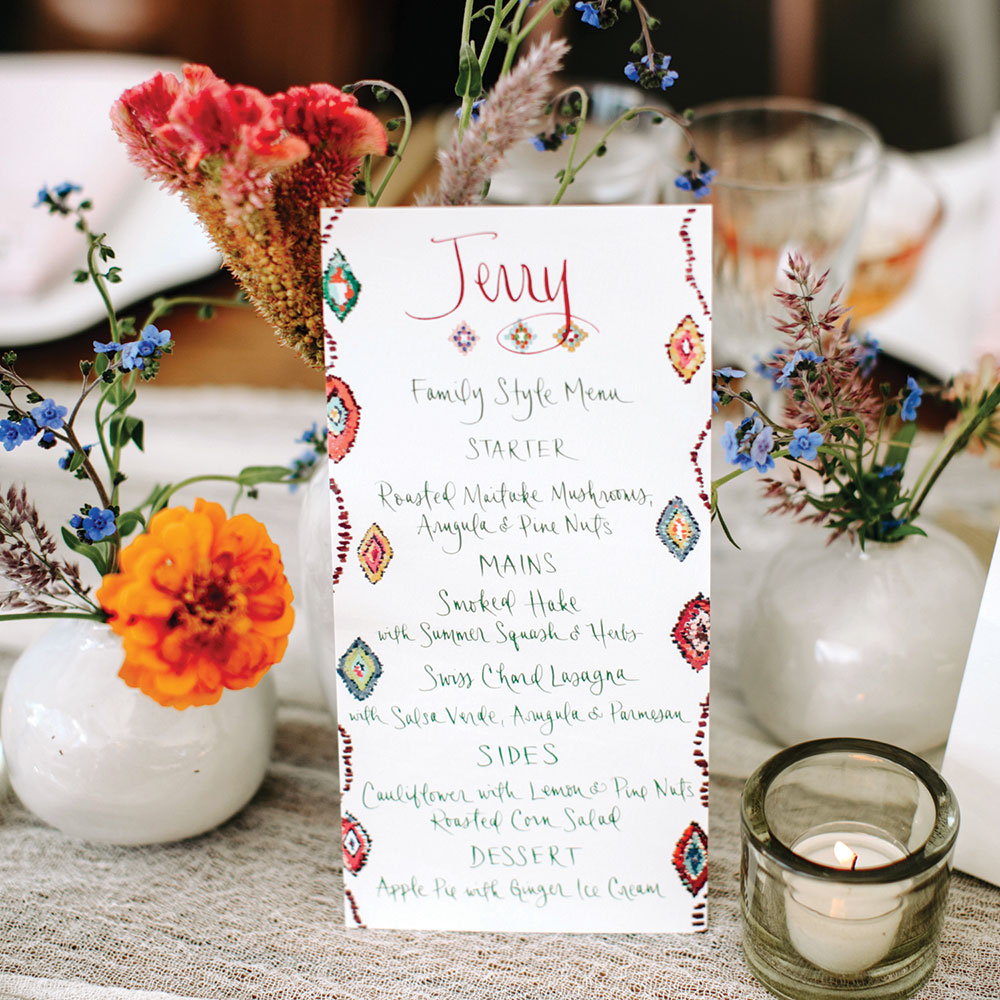 Jerry
Family Style Menu
STARTER
Roasted Maitake Mushrooms,
Arugula & Pine Nuts
MAINS
Smoked Hake
with Summer Squash & Herbs
Swiss Chard Lasagna
with Salsa Verde, Arugula & Parmesan
SIDES
Cauliflower with Lemon & Pine Nuts
Roasted Corn Salad
DESSERT
Apple Pie with Ginger Ice Cream